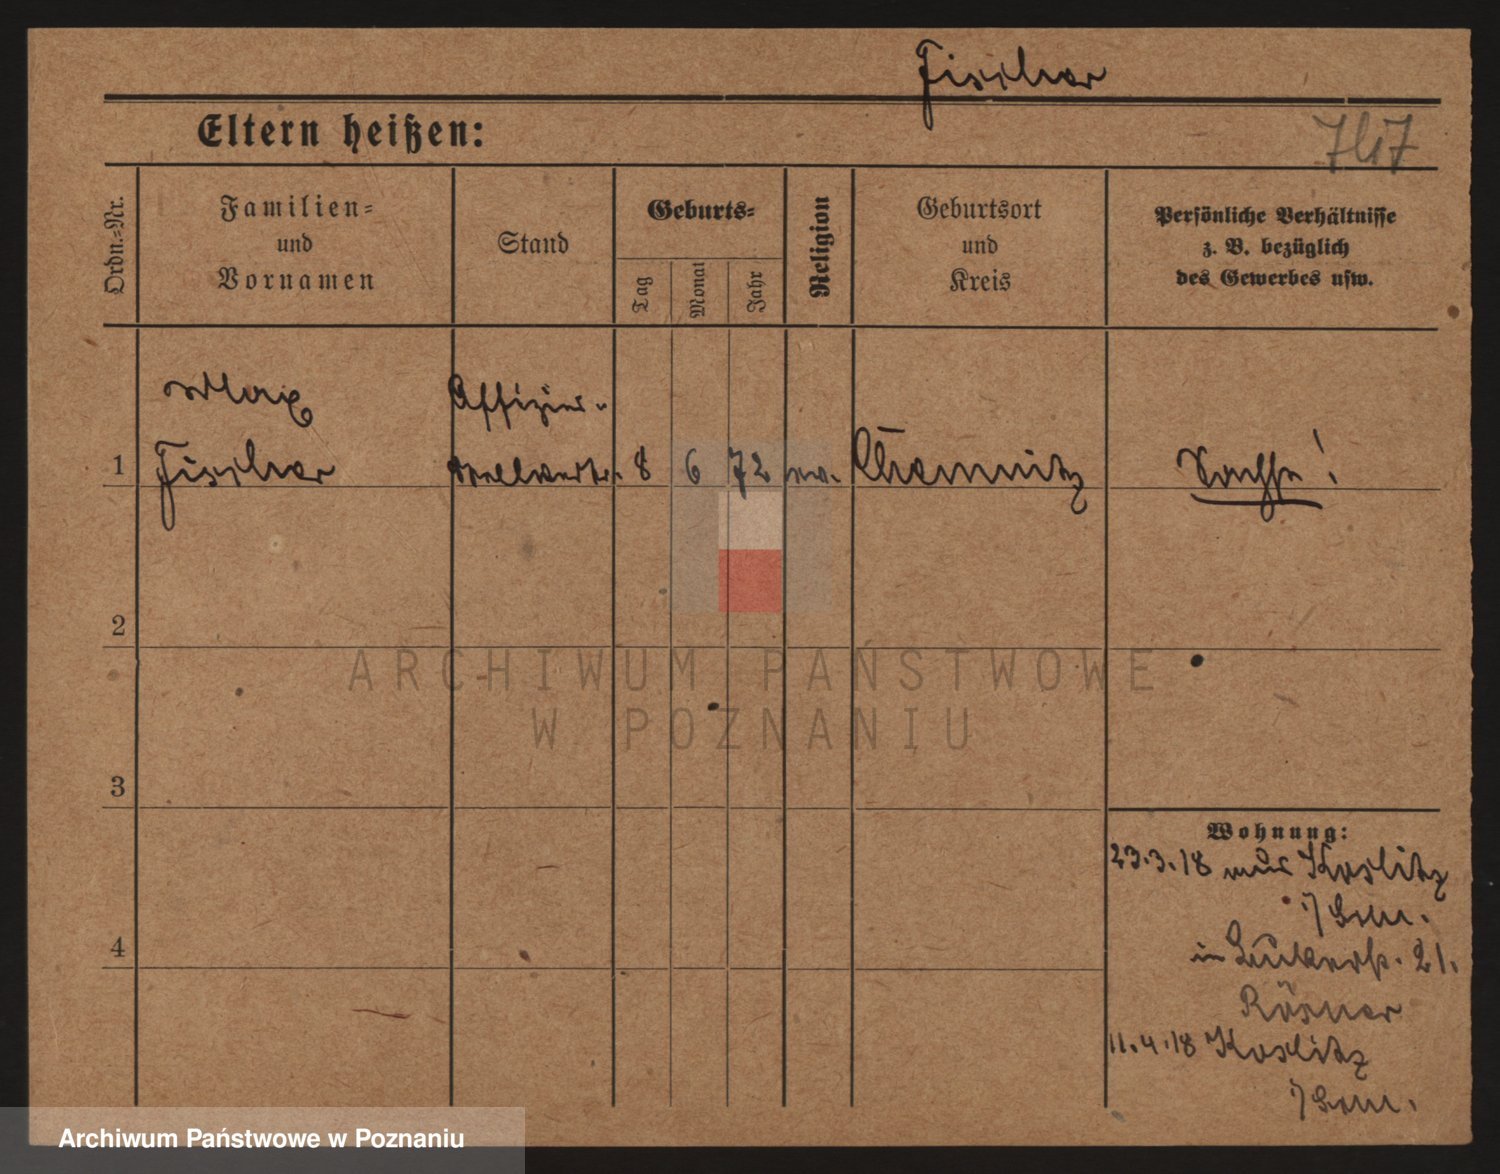 Fischer
Eltern heißen:
747
Ordn.-Nr.
Familien-
und
Vornamen
Stand
Geburts-
Tag
Monat
Jahr
Religion
Geburtsort
und
Kreis
Persönliche Verhältnisse
z. B. bezüglich
des Gewerbes usw.
Max Offizier-
1 Fischer stellvertr. 8 6 72 ev. Chemnitz Sachse!
2
ARCHIWUM PAŃSTWOWE
W POZNANIU
3
Wohnung:
23.3.18 aus Koslitz
in 21.
Rösner
4
11.4.18 Koslitz
Archiwum Państwowe w Poznaniu